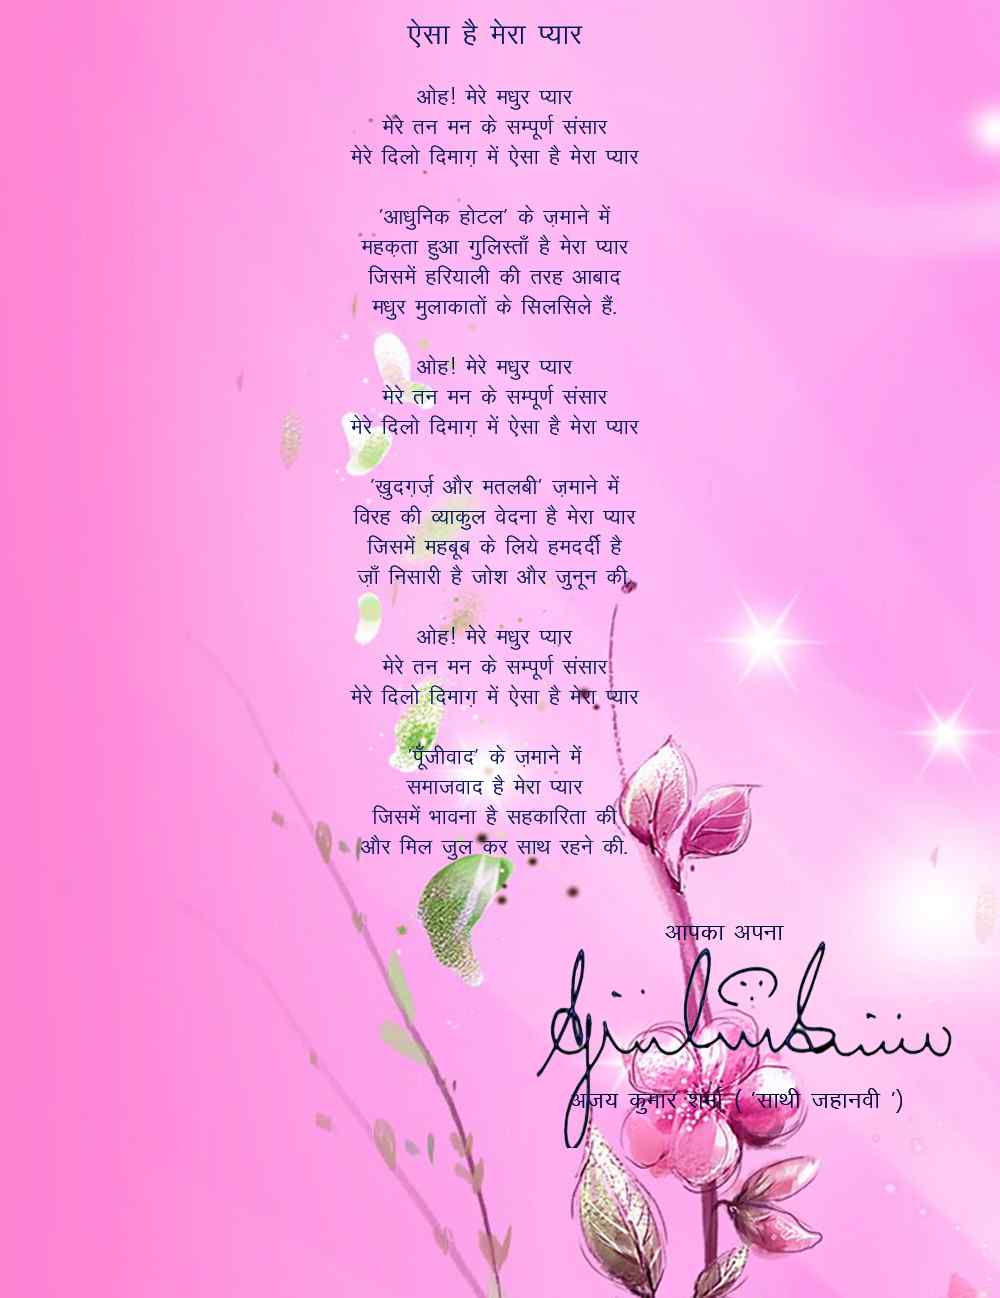 ऐसा है मेरा प्यार
ओह! मेरे मधुर प्यार
मेरे तन मन के सम्पूर्ण संसार
मेरे दिलो दिमाग़ में ऐसा है मेरा प्यार
'आधुनिक होटल' के ज़माने में
महक़ता हुआ गुलिस्ताँ है मेरा प्यार
जिसमें हरियाली की तरह आबाद
मधुर मुलाकातों के सिलसिले हैं.
ओह! मेरे मधुर प्यार
मेरे तन मन के सम्पूर्ण संसार
मेरे दिलो दिमाग़ में ऐसा है मेरा प्यार
'ख़ुदग़र्ज़ और मतलबी' ज़माने में
विरह की व्याकुल वेदना है मेरा प्यार
जिसमें महबूब के लिये हमदर्दी है
ज़ाँ निसारी है जोश और जुनून की.
ओह! मेरे मधुर प्यार
मेरे तन मन के सम्पूर्ण संसार
मेरे दिलो दिमाग़ में ऐसा है मेरा प्यार
'पूँजीवाद' के ज़माने में
समाजवाद है मेरा प्यार
जिसमें भावना है सहकारिता की
और मिल जुल कर साथ रहने की.
आपका अपना
अजय कुमार शर्मा ( 'साथी जहानवी ')